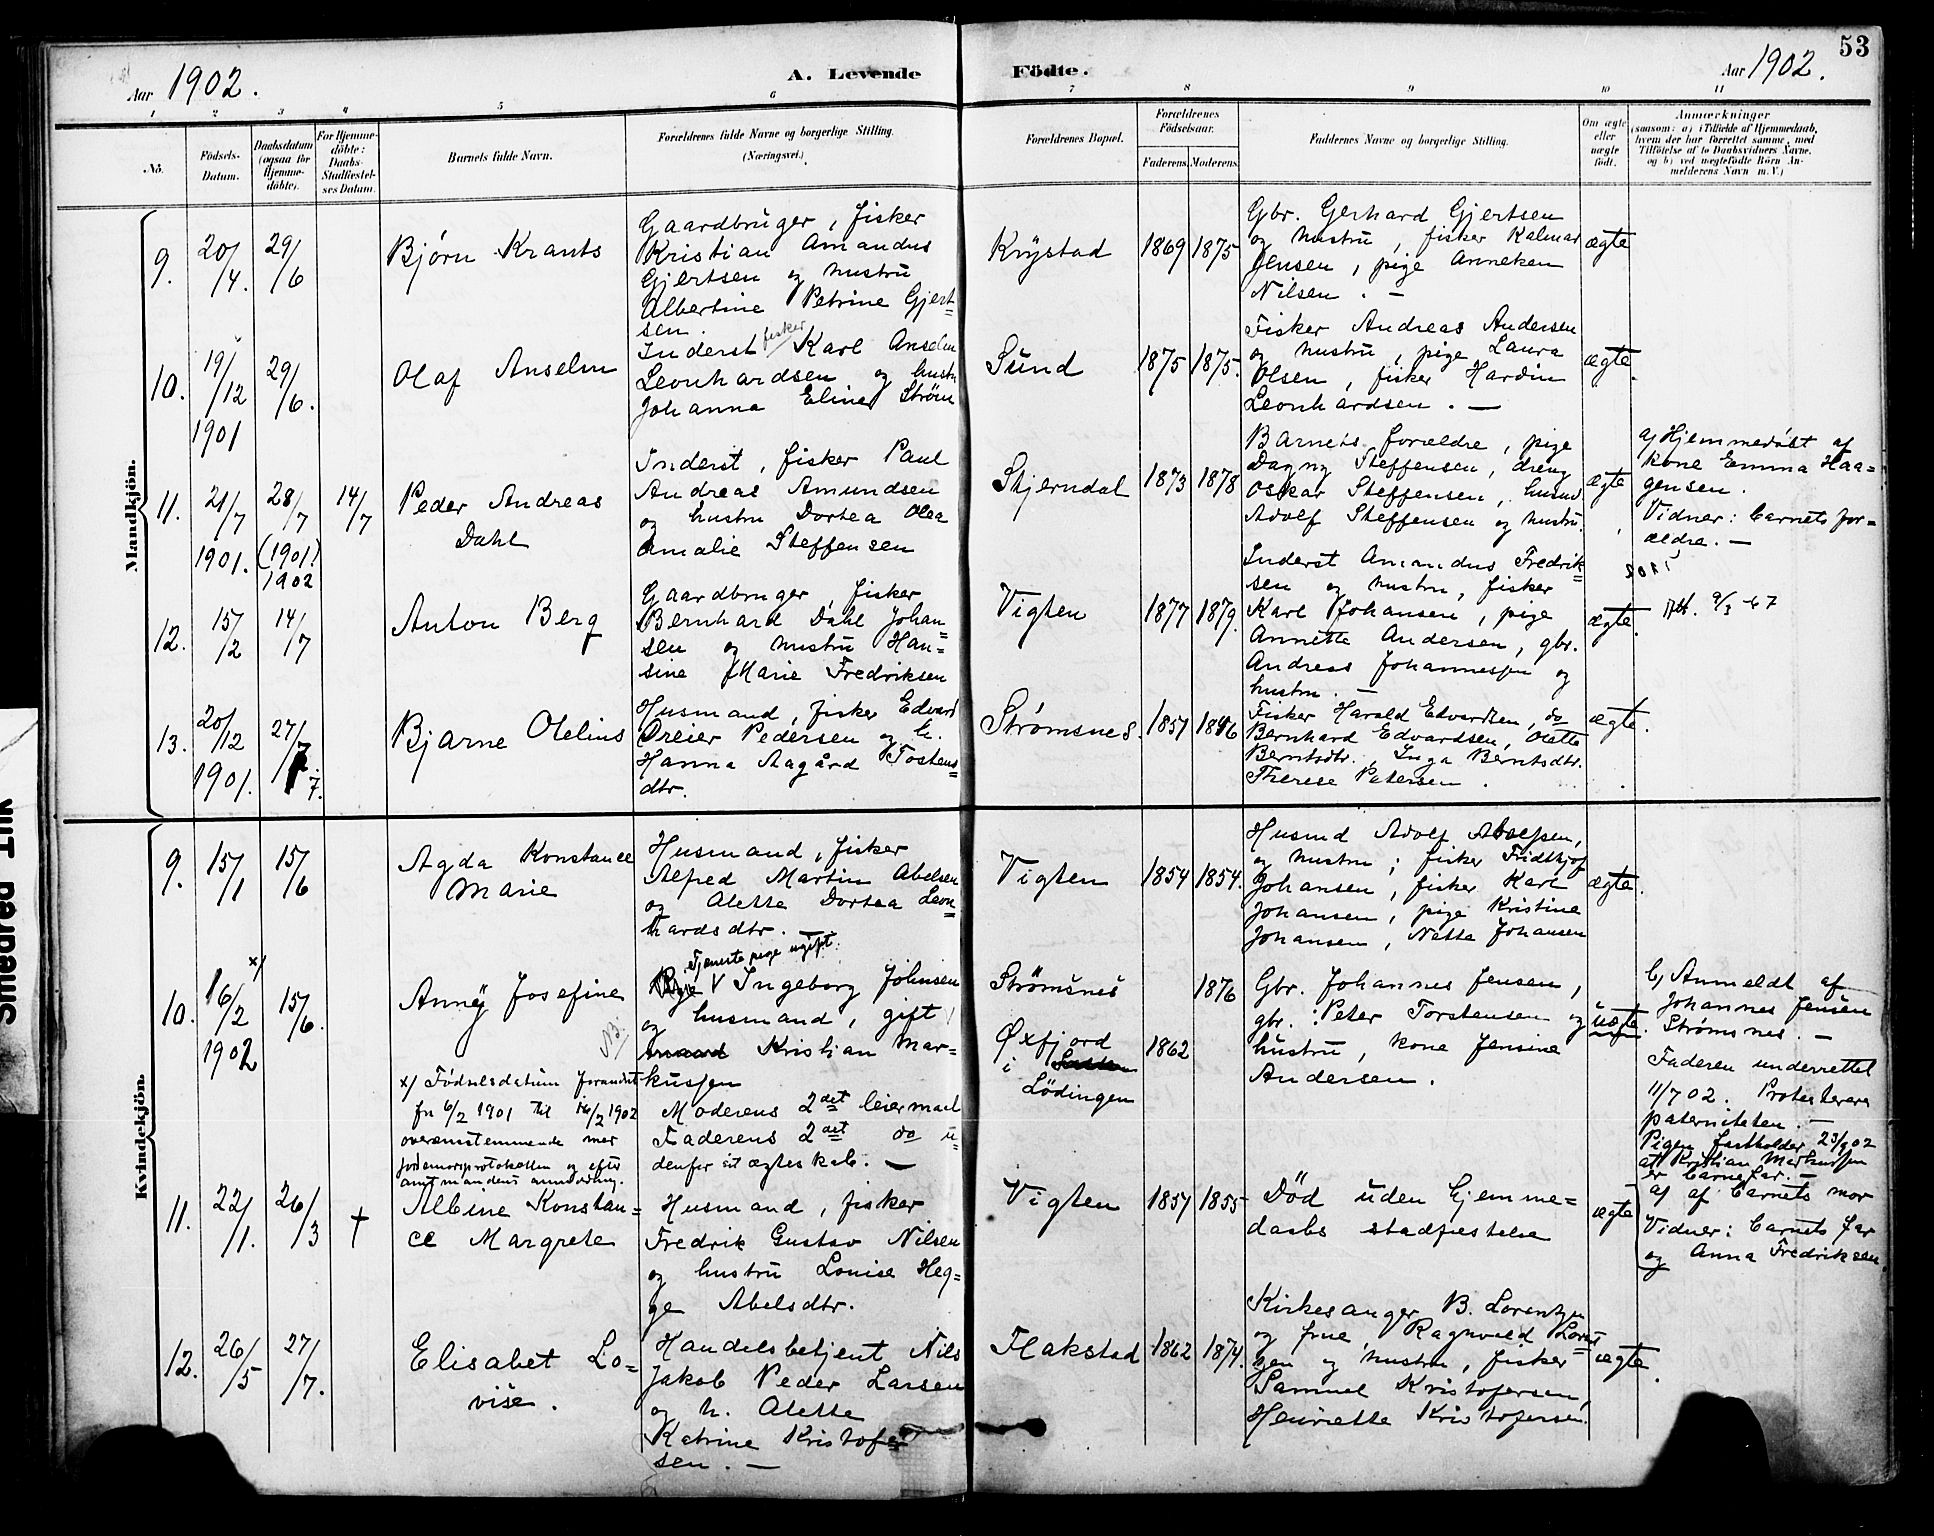 53
Aar 1902.
A. Levende Födte.
Aar 1902.
1 2 3 4 5 6 7 8 9 10 11
No.
Födsels-
Datum.
Daabsdatum
(ogsaa for
Hjemme-
döbte).
For Hjemme-
döbte:
Daabs-
Stadfæstel-
ses Datum.
Barnets fulde Navn.
Forældrenes fulde Navne og borgerlige Stilling.
(Næringsvei.)
Forældrenes Bopæl.
Forældrenes
Födselsaar.
Faderens. Moderens.
Faddernes Navne og borgerlige Stilling.
Om ægte
eller
uægte
født.
Anmærkninger
(saasom: a) i Tilfælde af Hjemmedaab,
hvem der har forrettet samme, med
Tilföielse af to Daabsvidners Navne.
og b) ved uægtefödte Börn An-
melderens Navn m. V.)
Mandkjön.
9.
20/4.
29/6
Bjørn Krants
Gaardbruger, fisker
Kristian Amandus
Gjertsen og hustru
Albertine Petrine Gjert=
sen.
Krystad
1869
1875
Gbr. Gerhard Gjertsen
og hustru, fisker Kalmar
Jensen, pige Anneken
Nilsen. —
ægte
10.
19/12
1901
29/6.
Olaf Anselm
Inderst fisker Karl Anselm
Leonhardsen og hustru
Johanna Eline Strøm
Sund
1875
1875.
Fisker Andreas Andersen
og hustru, pige Laura
Olsen, fisker Hardin
Leonhardsen. —
ægte.
11.
21/7
1901.
28/7
(1901)
1902
14/7
Peder Andreas
Dahl
Inderst, fisker Paul
Andreas Amundsen
og hustru Dortea Olea
Amalie Steffensen
Skjerndal
1873
1878
Barnets forældre, pige
Dagny Steffensen, dreng
Oskar Steffensen, husmd.
Adolf Steffensen og hustru.
ægte
a) Hjemmedøbt af
kone Emma Haa=
gensen.
Vidner: barnets for=
ældre. —
12.
15/2
14/7
Anton Berg
Gaardbruger, fisker
Bernhard Dahl Johan=
sen og hustru Han=
sine Marie Fredriksen
Vigten
1877
1879.
Inderst Amandus Fredrik=
sen og hustru, fisker
Karl Johansen, pige
Annette Andersen, gbr.
Andreas Johannessen og
hustru. —
ægte.
Att. 9/3 -67
13.
20/12
1901.
27/7.
7.
Bjarne Olelius
Husmand, fisker Edvard
Dreier Pedersen og h.
Hanna Aagård Tostens=
dtr.
Strømsnes.
1857
Fisker Harald Edvardsen, do
Bernhard Edvardsen, Olette
Berntsdtr., Inga Berntsdtr.
Therese Petersen.
ægte.
Kvindekjön.
9.
15/1
15/6
Agda Konstance
Marie
Husmand, fisker
Alfred Martin Abelsen
og Alette Dortea Leon=
hardsdtr. —
Vigten
1854
1854.
Husmd Adolf Abelsen,
og hustru; fisker Fridthjof
Johansen, fisker Karl
Johansen, pige Kristine
Johansen, Netta Johansen
ægte.
10.
x/
16/2
1902
15/6.
Anny Josefine
NB!
Tjenestepige ugift
Pige V Ingeborg Johnsen
og husmand, gift,
Kristian Mar-
kussen
Moderens 2det leiermaal
Faderens 2det do u=
denfor sit ægteskab. —
x/ Fødselsdatum forandret
fra 6/2 1901 til 16/2 1902
overensstemmende med
jordemorprotokollen og efter
amtmandens anmodning.
Strømsnes
1876
Øxfjord
i
Lödingen
1862
Gbr. Johannes Jensen,
gbr. Peter Torstensen og
hustru, kone Jensine
Andersen.
uægte.
b) Anmeldt af
Johannes Jensen
Strømsnes. —
Faderen underrettet
11/7 02. Protesterer
paterniteten. —
Pigen fastholder 23/9 02
at Kristian Markussen
er barnefar. —
11.
22/1.
26/3
†
Albine Konstan=
ce Margrete
Husmand, fisker
Fredrik Gustav Nilsen
og hustru Louise Heg=
ge Abelsdtr.
Vigten
1857
1855
Død uden hjemme=
daabs stadfæstelse
ægte
a) af barnets mor
Vidner: barnets far
og Anna Fredriksen.
12.
26/5
27/7.
Elisabet Lo=
vise.
Handelsbetjent Nils
Jakob Peder Larsen
og h. Alette
Katrine Kristofer
sen. —
Flakstad
1862
1874.
Kirkesanger B. Lorentzen
og frue Ragnvald Lorent=
zen og hustru, fisker
Samuel Kristofersen,
Henriette Kristofersen.
ægte.